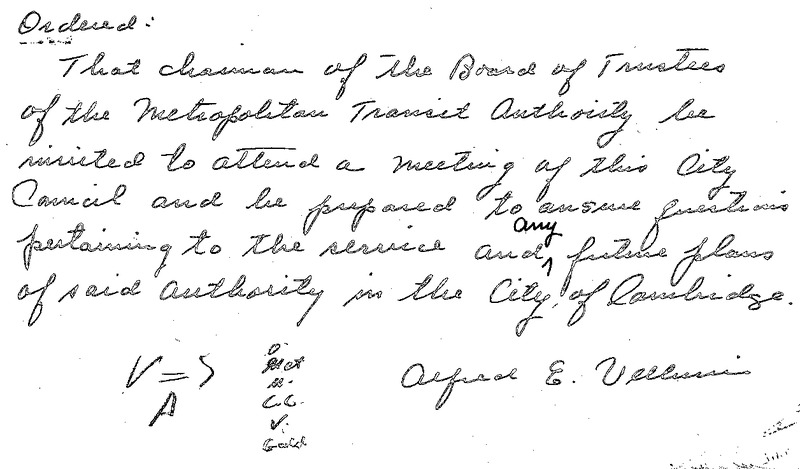 Ordered:
That chairman of the Board of Trustees
of the Metropolitan Transit Authority be
invited to attend a meeting of this City
Council and be prepared to answer questions
any
pertaining to the service and future plans
of said Authority in the City of Cambridge.
V = S
A
D.
McN
C.C.
V.
Gold
Alfred E. Vellucci